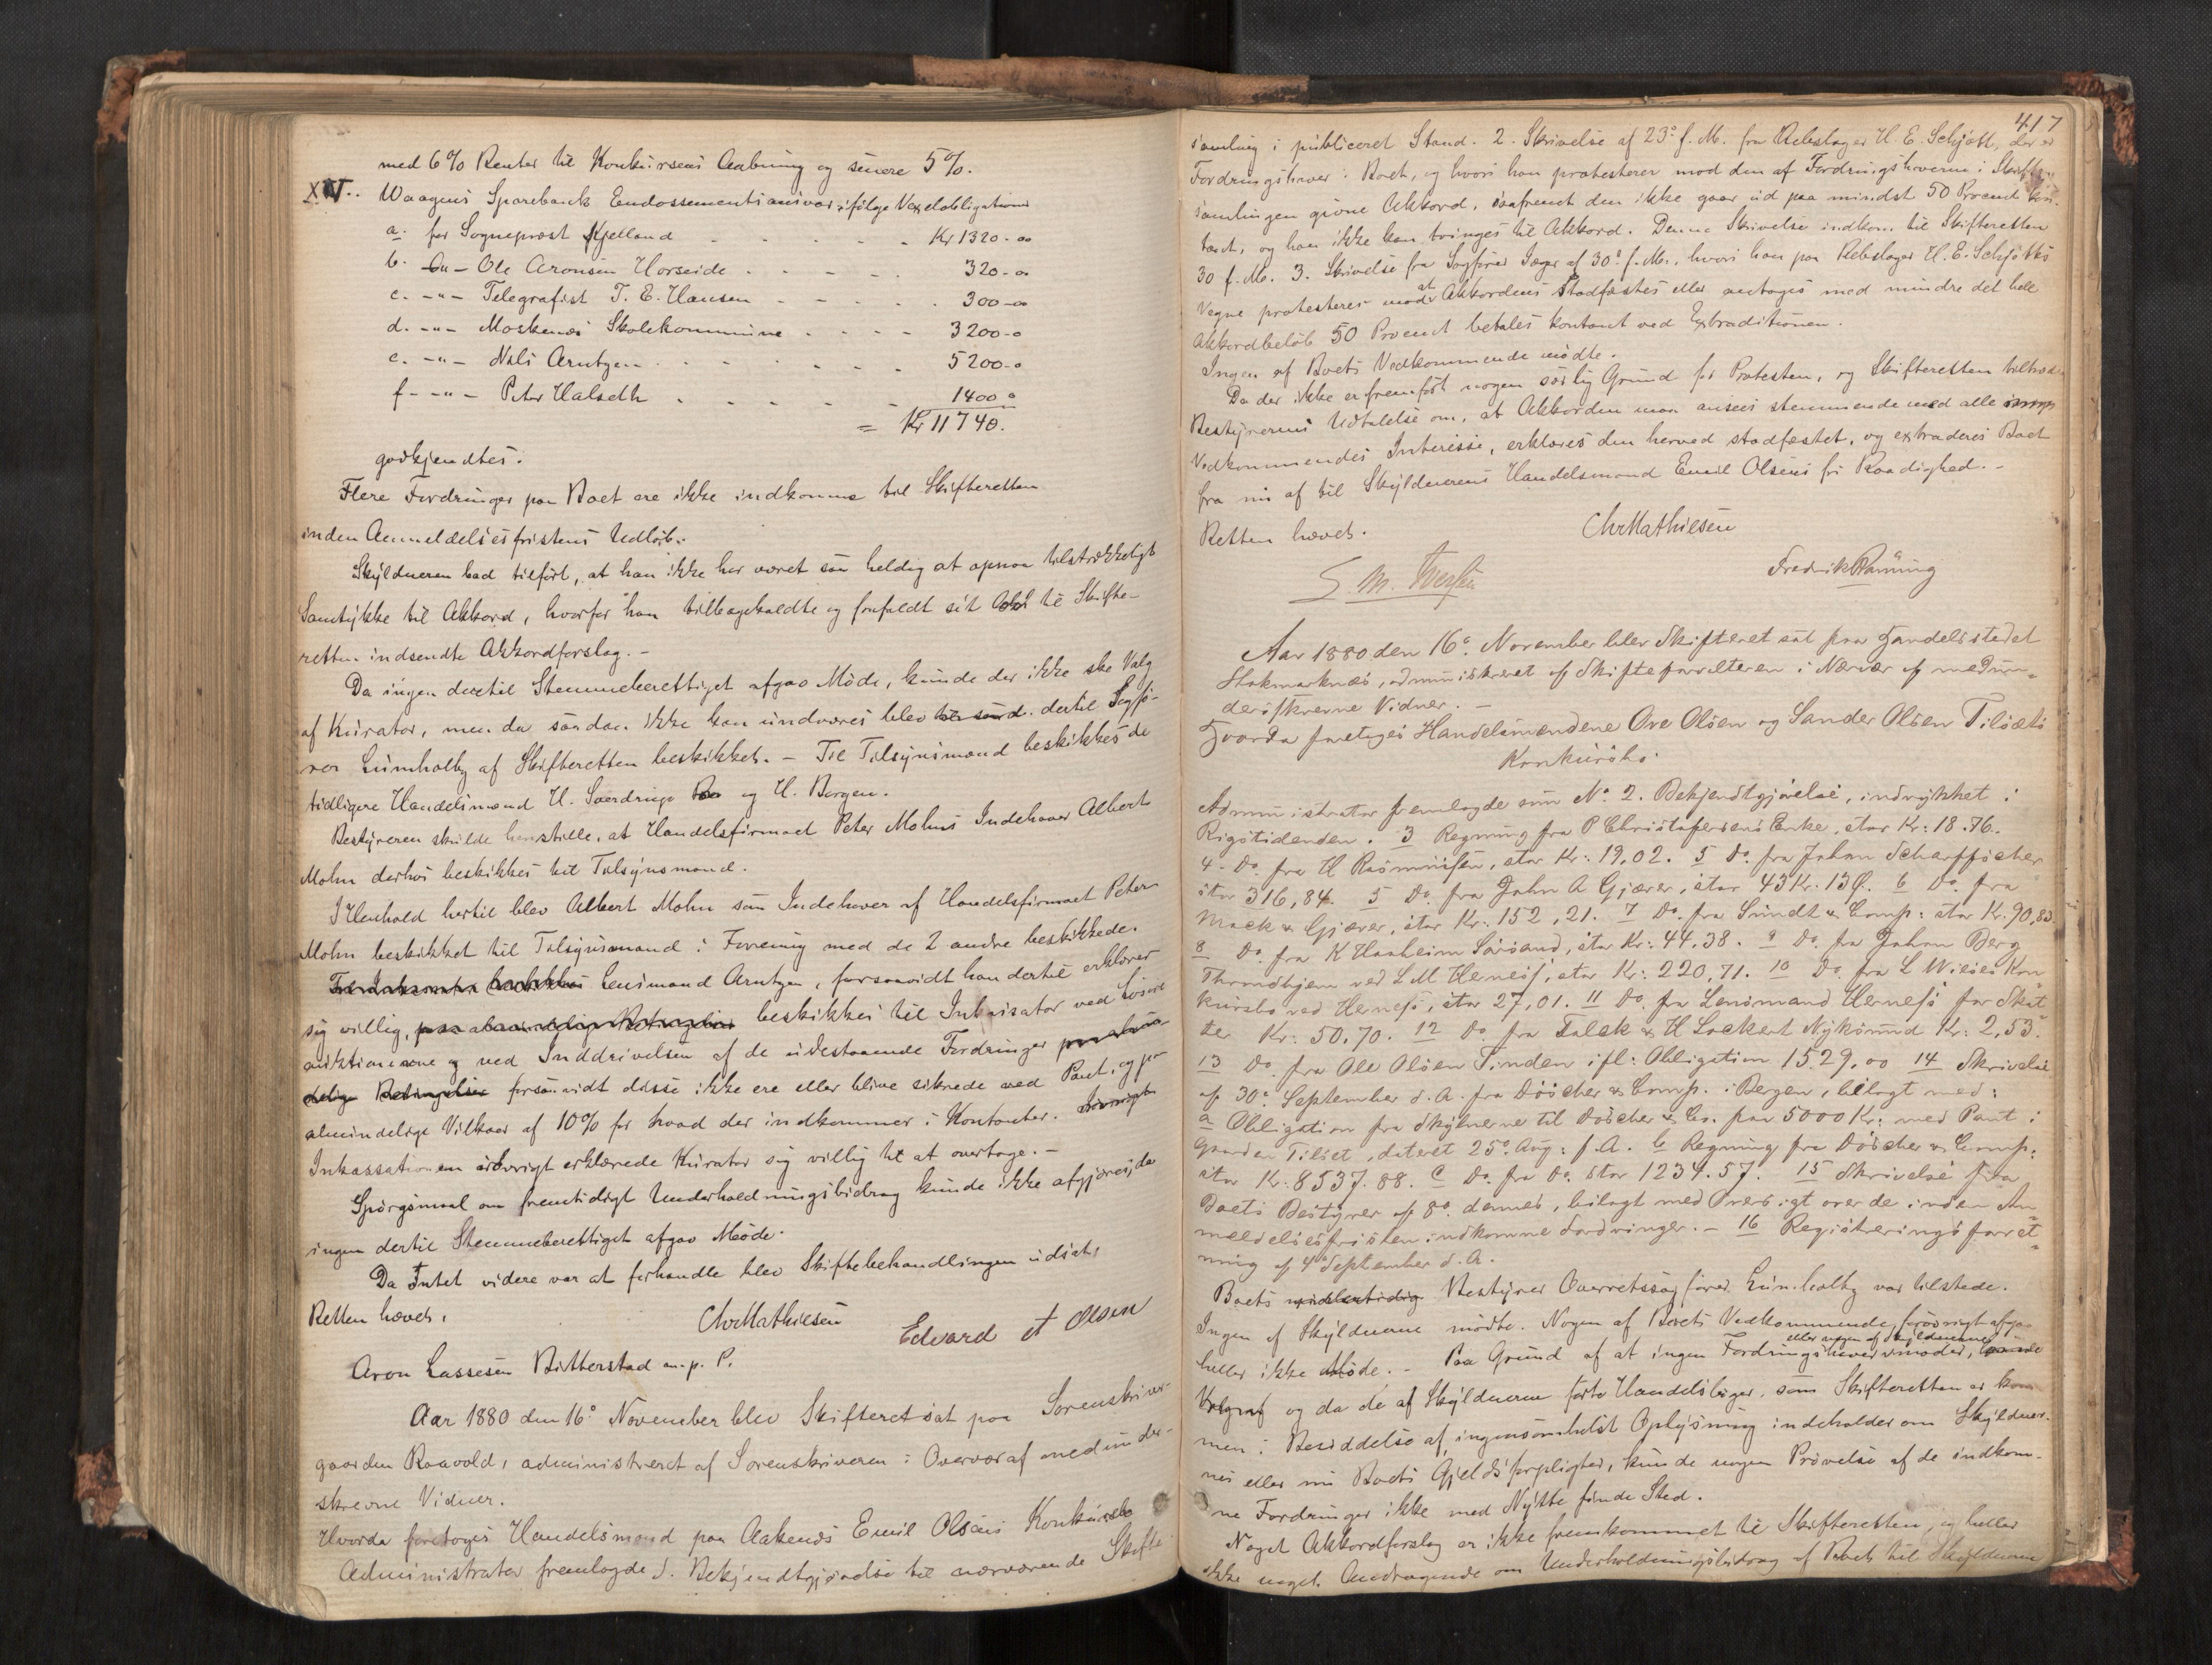 med 6% Renter til Konkursens Aabning og senere 5%.
XV. Waagens Sparebank Endossementsansvar ifølge Vexelobligationer
a. for Sogneprest Kjelland Kr 1320.00
b. Ole Aronsen Horseide 320-00
c. -"- Telegrafist T. E. Hansen 300-00
d. -"- Moskenes Skolekommune 3200-0
e. -"- Nils Arntzen 5200-0
f. -"- Peter Halseth 1400 0
= Kr 11740.
godkjendtes.
Flere Fordringer paa Boet ere ikke indkomne til Skifteretten
inden Anmeldelsesfristens Udløb.
Skyldneren bad tilført, at han ikke har været saa heldig at opnaa tilstrækkeligt
Samtykke til Akkord, hvorfor han tilbagekaldte og frafaldt sit til Skifte-
retten indsendte Akkordforslag. -
Da ingen dertil Stemmeberettiget afgav Møde, kunde der ikke ske Valg
af Kurator, men da saadan ikke kan undværes blev dertil Sagfø-
rer Lumholtz af Skifteretten beskikket. - Til Tilsynsmænd beskikkes de
tidligere Handelsmænd H. Sverdrup og H. Borgen.
Bestyreren skulde henstille, at Handelsfirmaet Peter Mohns Indehaver Albert
Mohn derhos beskikkes til Tilsynsmand.
I Henhold hertil blev Albert Mohn som Indehaver af Handelsfirmaet Peter
Mohn beskikket til Tilsynsmand i Forening med de 2 andre beskikkede.
Lensmand Arntzen, forsaavidt han dertil erklærer
sig villig, beskikkes til Inkassator ved Løsøre
auktionerne og ved Inddrivelsen af de udestaaende Fordringer
forsaavidt disse ikke ere eller blive sikrede ved Pant, og paa
almindelige Vilkaar af 10% for hvad der indkommer i Kontanter.
Inkassationen iøvrigt erklærede Kurator sig villig til at overtage. -
Spørgsmaal om fremtidigt Underholdningsbidrag kunde ikke afgjøres, da
ingen dertil Stemmeberettiget afgav Møde.
Da Intet videre var at forhandle blev Skiftebehandlingen udsat,
Retten hævet.
Chr Mathiesen Edvard A Olsen
Aron Lassesen Bitterstad m. p. P.
Aar 1880 den 16de November blev Skifteret sat paa Sorenskriver-
gaarden Raavold, administreret af Sorenskriveren i Overvær af medunder-
skrevne Vidner.
Hvorda foretoges Handelsmand paa Aakenes Emil Olsens Konkursbo
Administrator fremlagde 1. Bekjendtgjørelse til nærværende Skifte
417
samling i publiceret Stand. 2. Skrivelse af 23de f. M. fra Rebslager H. E. Schjøtt, der er
Fordringshaver i Boet, og hvori han protesterer mod den af Fordringshaverne i Skifte
samlingen givne Akkord, saafremt den ikke gaar ud paa mindst 50 Procent kon-
tant, og han ikke kan tvinges til Akkord. Denne Skrivelse indkom til Skifteretten
30 f. M. 3. Skrivelse fra Sagfører Jæger af 30te f. M., hvori han paa Rebslager H. E. Schjøtts
Vegne protesterer mod at Akkorden stadfæstes eller antages med mindre det hele
Akkordbeløb 50 Procent betales kontant ved Extraditionen.
Ingen af Boets Vedkommende mødte.
Da der ikke er fremført nogen særlig Grund for Protesten, og Skifteretten tiltræder
Bestyrerens Udtalelse om, at Akkorden maa ansees stemmende med alle
Vedkommendes Interesse, erklæres den herved stadfæstet, og extraderes Boet
fra nu af til Skyldnerens Handelsmand Emil Olsens fri Raadighed. -
Retten hævet. Chr Mathiesen
Fredrik Rønning
Aar 1880 den 16de November blev Skifteret sat paa Handelsstedet
Stokmarknæs, administreret af Skifteforvalteren i Nærvær af medun-
derskrevne Vidner. -
Hvorda foretoges Handelsmændene Ove Olsen og Sander Olsen Tilsæts
Konkursbo.
Administrator fremlagde som No. 2. Bekjendtgjørelse, indrykket i
Rigstidenden. 3 Regning fra P Christofersens Enke, stor Kr: 18.76.
4. Do. fra H Rasmussen, stor Kr: 19,02. 5 Do. fra Johan Scharffscher
stor 316,84. 5 Do. fra John A Gjæver, stor 43 Kr. 13 Ø. 6 Do. fra
Mack & Gjæver, stor Kr: 152,21. 7 Do. fra Sundt & Comp: stor Kr. 90,83.
8 Do. fra K Haaheim Sørsand, stor Kr: 44.38. 9 Do. fra Johan Berg
Throndhjem ved L M Hernes, stor Kr: 220,71. 10 Do. fra L Wisies Kon
kursbo ved Hernes, stor 27,01. 11 Do. fra Lensmand Hernes for Skat
ter Kr: 50.70. 12 Do. fra Falck & H Lockert Nyksund Kr: 2,53.
13 Do. fra Ole Olsen Tinden ifl: Obligation 1529.00 14 Skrivelse
af 30te September d. A. fra Döscher & Comp. i Bergen, bilagt med:
a Obligation fra Skyldnerne til Döscher & Co. paa 5000 Kr: med Pant i
Gaarden Tilset, dateret 25de Aug: f. A. b Regning fra Döscher & Comp:
stor Kr: 8537.88. c Do. fra Do. stor 1234.57. 15 Skrivelse fra
Boets Bestyrer af 8de dennes, bilagt med Oversigt over de inden An
meldelsesfristen indkomne Fordringer. - 16 Registreringsforret
ning af 4de September d. A.
Boets Bestyrer Overretssagfører Lumholtz var tilstede.
Ingen af Skyldnerne mødte. Nogen af Boets Vedkommende forøvrigt afgav
heller ikke Møde. - Paa Grund af at ingen Fordringshaver eller nogen af Skyldnerne møder,
og da de af Skyldnerne førte Handelsbøger, som Skifteretten er kom
men i Besiddelse af ingensomhelst Oplysning indeholder om Skyldner-
nes eller nu Boets Gjældsforpligter, kunde nogen Prøvelse af de indkom-
ne Fordringer ikke med Nytte finde Sted.
Noget Akkordforslag er ikke fremkommet til Skifteretten, og heller
ikke noget Andragende om Underholdningsbidrag af Boet til Skyldnerne